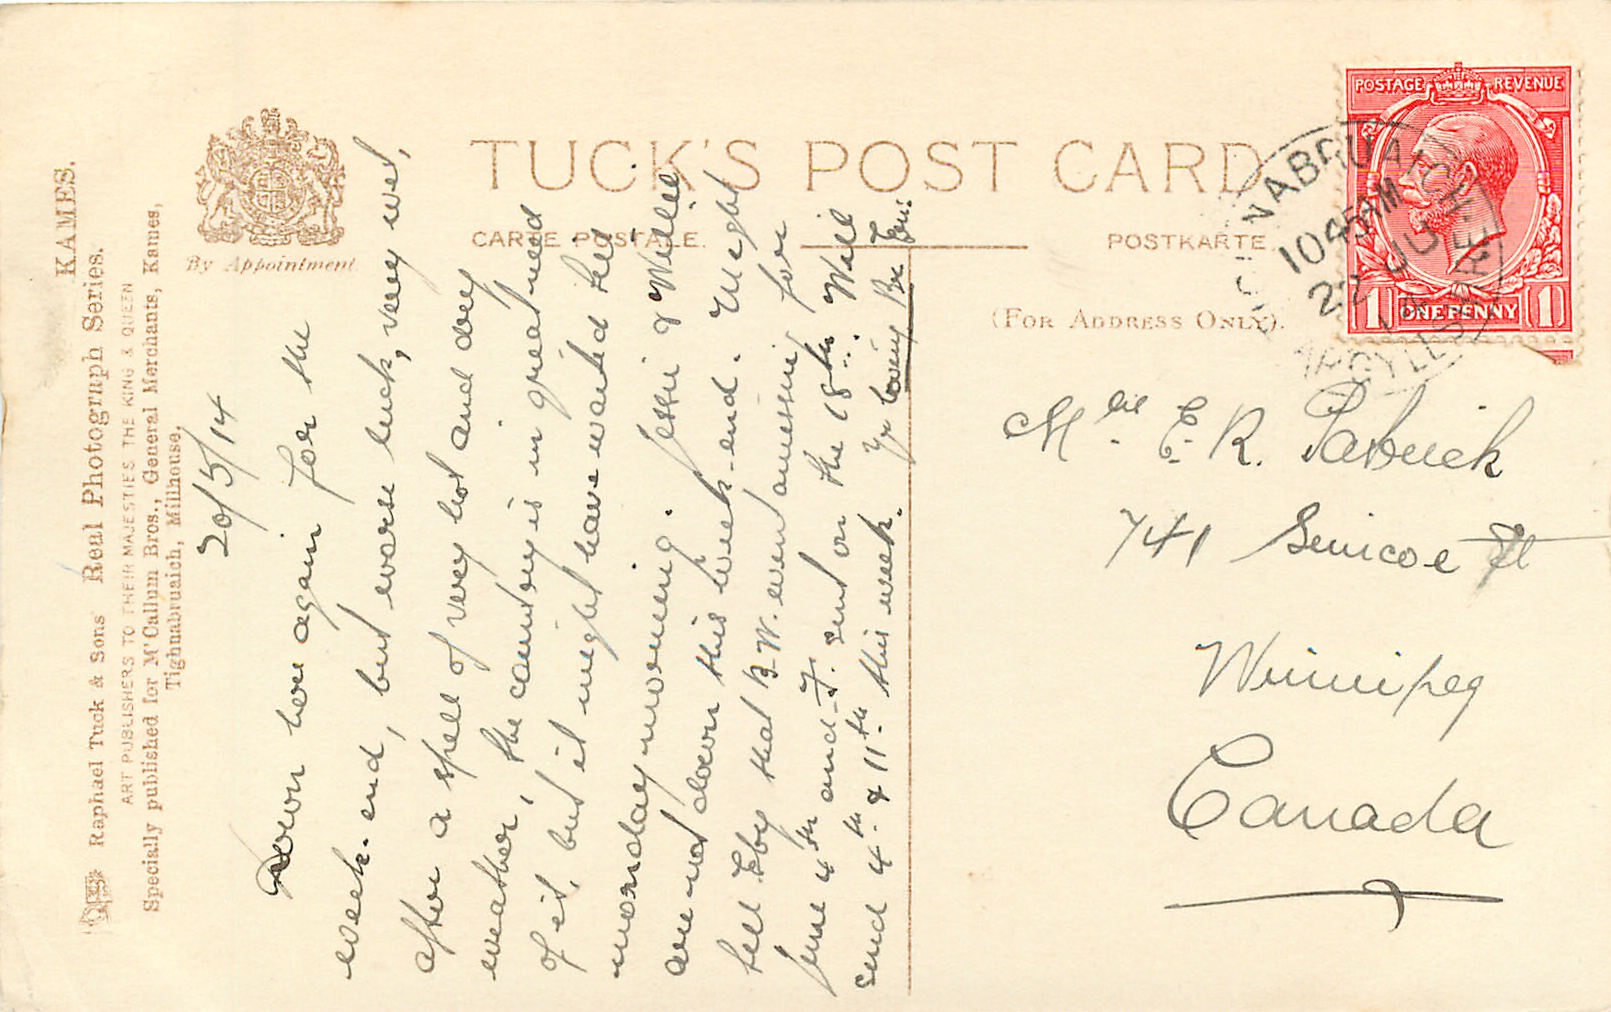 KAMES.
Raphael Tuck & Sons' Real Photograph Series.
ART PUBLISHERS TO THEIR MAJESTIES THE KING & QUEEN
Specially published for M'Callum Bros., General Merchants, Kames,
Tighnabruaich, Millhouse.
By Appointment
TUCK'S POST CARD
CARTE POSTALE.
POSTKARTE
(FOR ADDRESS ONLY).
POSTAGE REVENUE
1 ONE PENNY 1
TIGHNABRUAICH
10 45 AM
22 JU
14
ARGYLESHIRE
20/5/14
Down here again for the
week-end, but worse luck, very wet,
after a spell of very hot and dry
weather, the country is in great need
of it, but it might have waited till
monday morning. Jessie & Willie
are not down this week-end. Might
tell Eby that B.W. went amissing for
June 4th and F. sent on the 18th. Will
send 4th & 11th this week. Yr loving Br.
Mlle E. R.
741 Simcoe St
Winnipeg
Canada